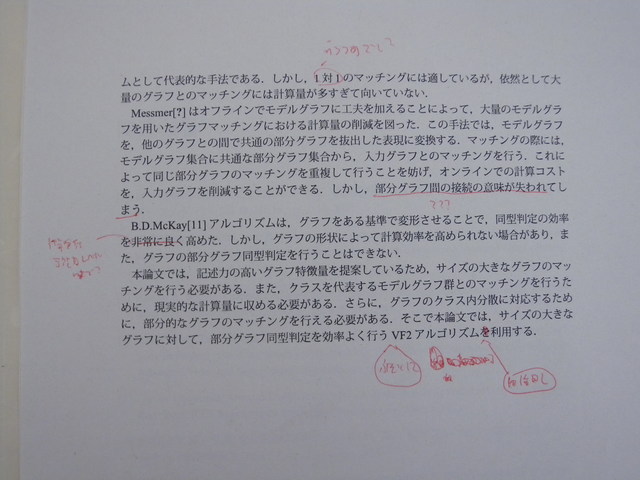 ムとして代表的な手法である．しかし，1 対 1 のマッチングには適しているが，依然として大
量のグラフとのマッチングには計算量が多すぎて向いていない．
Messmer[?] はオフラインでモデルグラフに工夫を加えることによって，大量のモデルグラ
フを用いたグラフマッチングにおける計算量の削減を図った．この手法では，モデルグラフ
を，他のグラフとの間で共通の部分グラフを抜出した表現に変換する．マッチングの際には，
モデルグラフ集合に共通な部分グラフ集合から，入力グラフとのマッチングを行う．これに
よって同じ部分グラフのマッチングを重複して行うことを妨げ，オンラインでの計算コスト
を，入力グラフを削減することができる．しかし，部分グラフ間の接続の意味が失われてし
まう．
???
B.D.McKay[11] アルゴリズムは，グラフをある基準で変形させることで，同型判定の効率
を非常に良く高めた．しかし，グラフの形状によって計算効率を高められない場合があり，ま
た，グラフの部分グラフ同型判定を行うことはできない．
本論文では，記述力の高いグラフ特徴量を提案しているため，サイズの大きなグラフのマッ
チングを行う必要がある．また，クラスを代表するモデルグラフ群とのマッチングを行うため
に，現実的な計算量に収める必要がある．さらに，グラフのクラス内分散に対応するため
に，部分的なグラフのマッチングを行える必要がある．そこで本論文では，サイズの大きな
グラフに対して，部分グラフ同型判定を効率よく行う VF2 アルゴリズムを利用する．